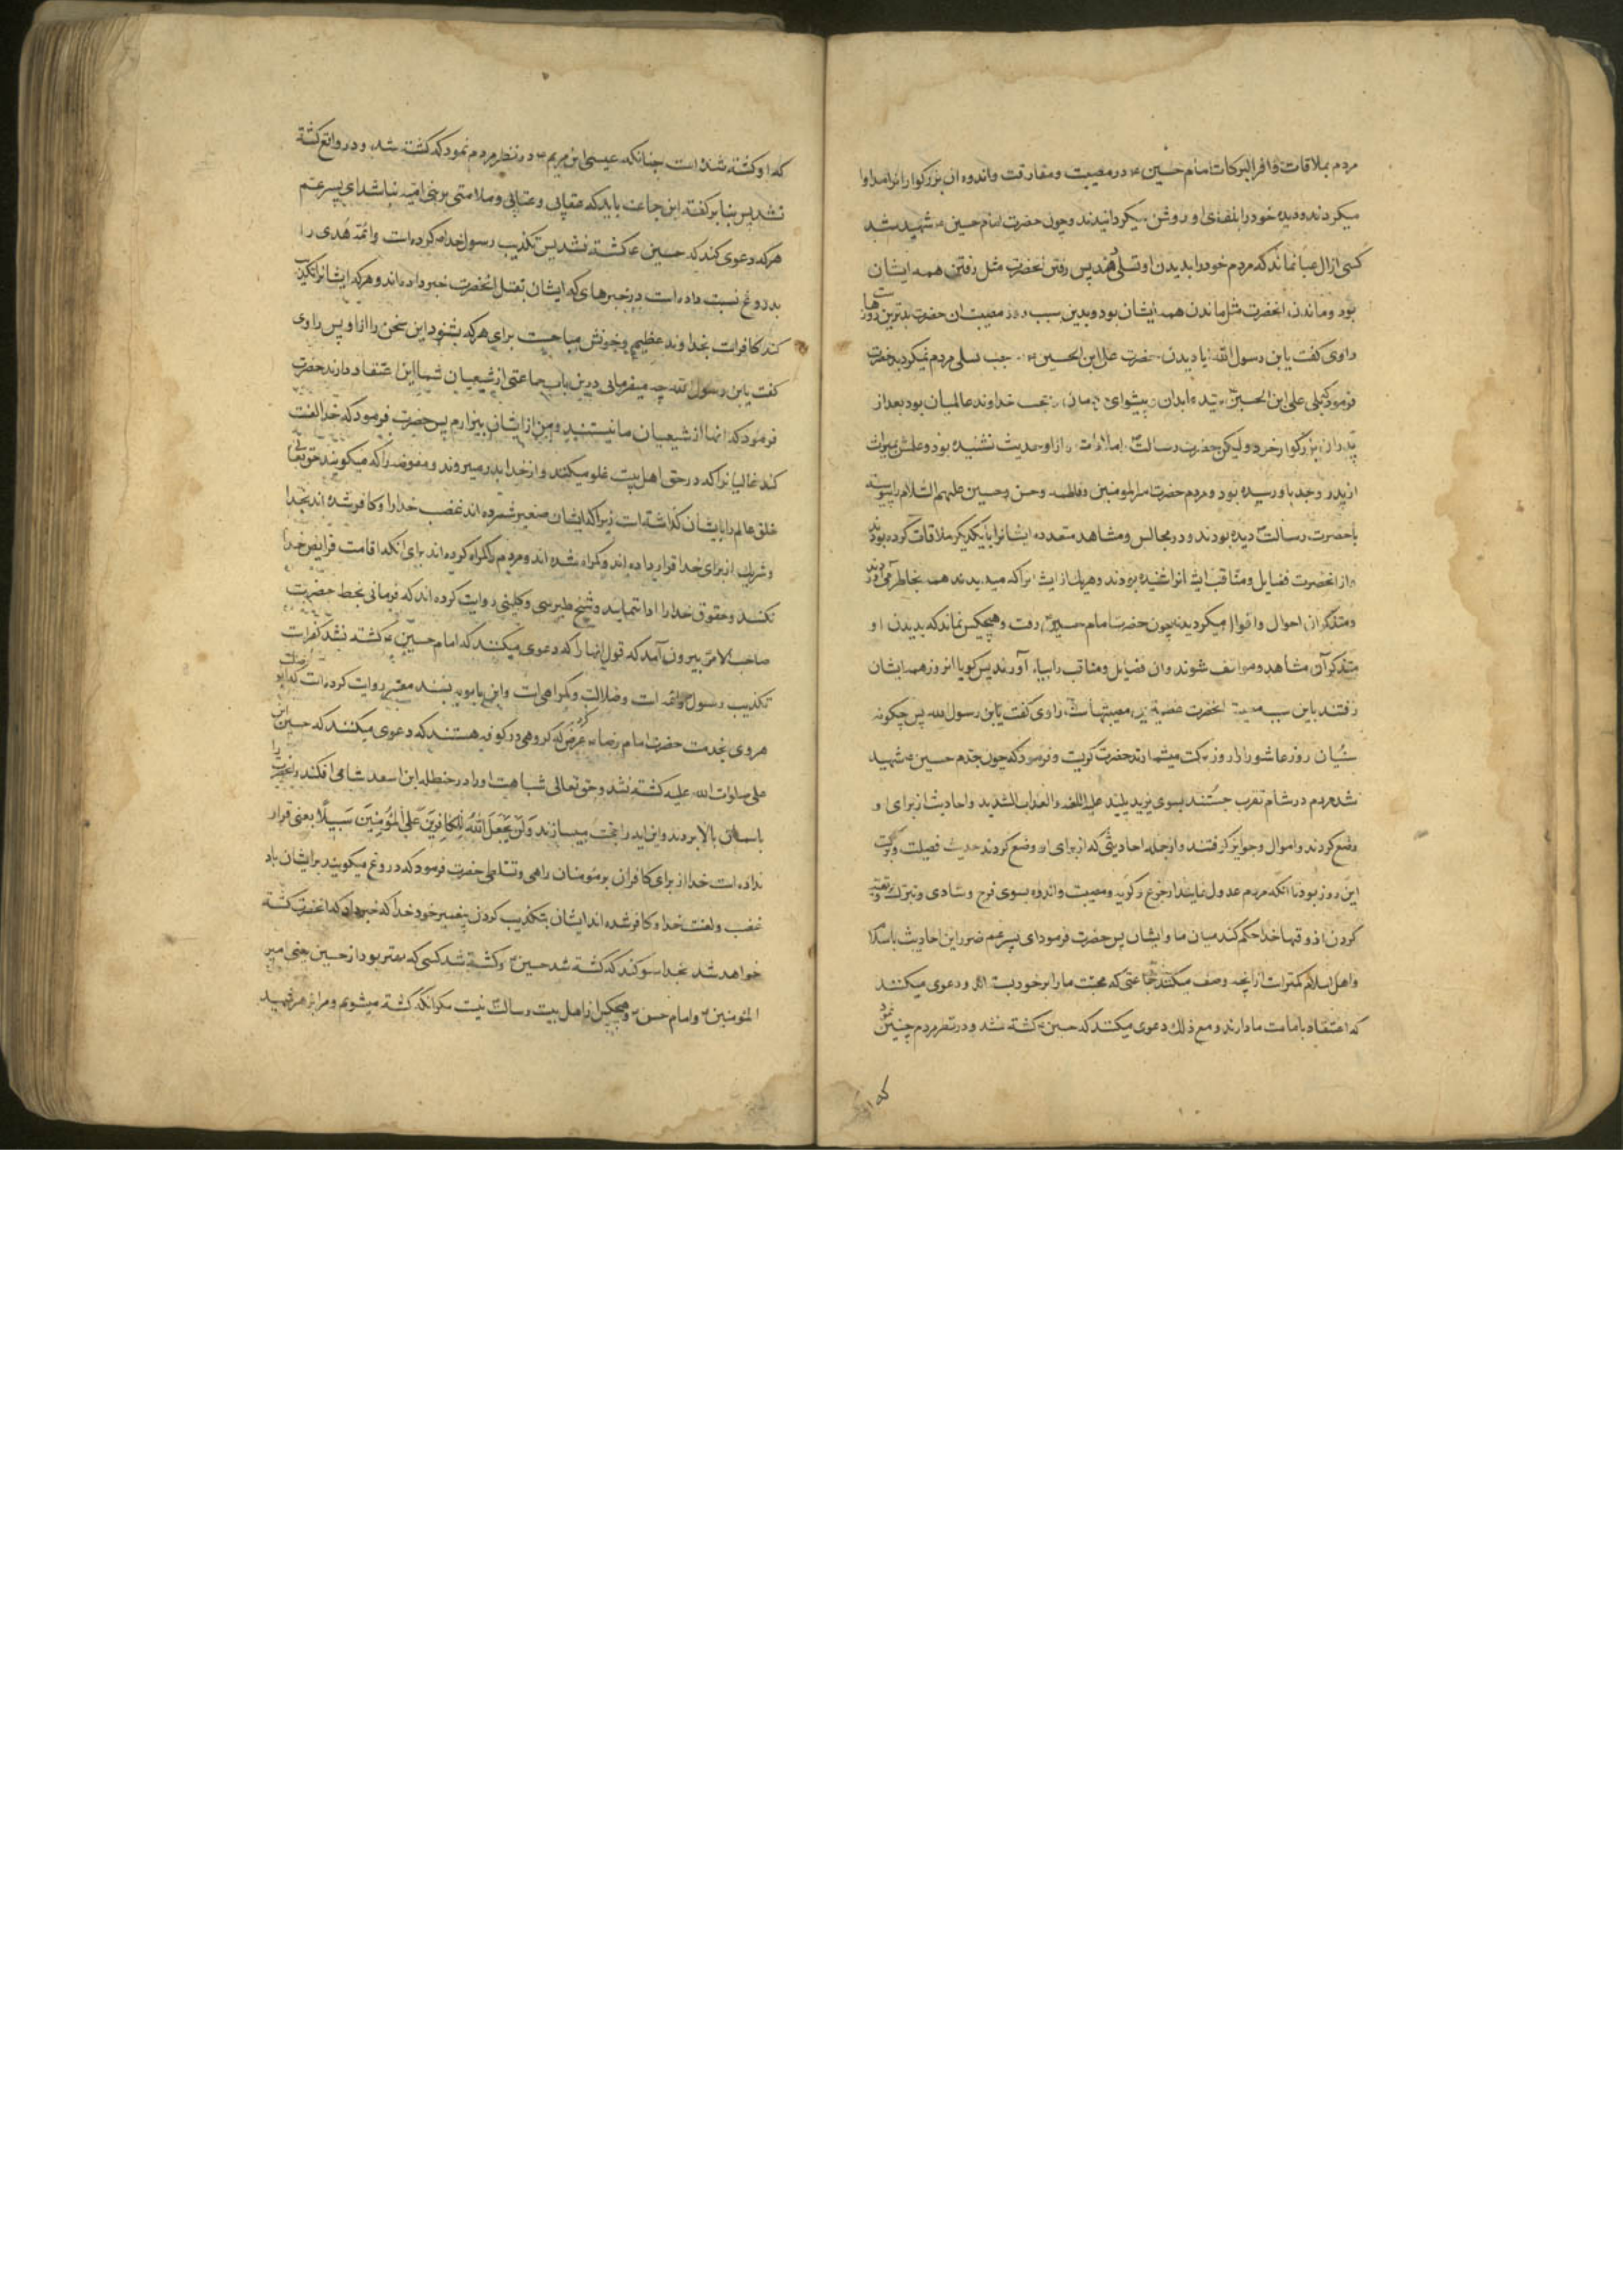 مردم بملاقات وافر البركات امام حسین ع در مصیبت ومفارقت واندوه ان بزرکوارانرا مداوا
میکردند ودیده خود را بلقای او روشن میکردانیدند وچون حضرت امام حسین ع شهید شد
کسی از ال عبا نماند که مردم خود را بدیدن او تسلی دهند پس رفتن انحضرت مثل رفتن همه ایشان
بود وماندن انحضرت مثل ماندن همه ایشان بود وبدین سبب روز مصیبت ان حضرت بدترین روزهاست
راوی کفت یابن رسول الله ایا دیدن حضرت علی ابن الحسین ع موجب تسلی مردم نمیکردید حضرت
فرمود که بلی علی ابن الحسین ع سید عابدان و پیشوای زمان وحجت خداوند عالمیان بود بعد از
پدران بزرکوار خود ولیکن حضرت رسالت را ملاقات نکرده از او حدیث نشنیده بود وعلمش بمیراث
از پدر وجد باو رسیده بود ومردم حضرت امیر المومنین وفاطمه وحسن وحسین علیهم السلام را پیوسته
با حضرت رسالت دیده بودند ودر مجالس ومشاهد متعدده ایشانرا با یکدیکر ملاقات کرده بودند
واز انحضرت فضایل ومناقب ایشانرا شنیده بودند وهریک از ایشانرا که میدیدند همه بخاطر می آوردند
ومتذکر ان احوال واقوال میکردیدند چون حضرت امام حسین ع رفت وهیچکس نماند که بدیدن او
متذکر آن مشاهد ومواقف شوند وان فضایل ومناقب را بیاد آورند پس کویا انروز همه ایشان
رفتند باین سبب مصیبت انحضرت عظیم ترین مصیبتهاست راوی کفت یابن رسول الله پس چکونه
سنیان روز عاشورا را روز برکت میشمارند حضرت کریست وفرمود که چون جدم حسین ع شهید
شد مردم در شام تقرب جستند بسوی یزید پلید علیه اللعنه والعذاب الشدید واحادیث از برای او
وضع کردند واموال وجوایز کرفتند واز جمله احادیثی که از برای او وضع کردند حدیث فضیلت وبرکت
این روز بود تا انکه مردم عدول نمایند از جزع وکریه ومصیبت واندوه بسوی فرح وشادی وتبرک وتهیه
کردن اذوقها خدا حکم کند میان ما وایشان پس حضرت فرمود ای پسر عم ضرر این احادیث باسلام
واهل اسلام کمتر است از انچه وضع میکنند جماعتی که محبت ما را بر خود بسته اند ودعوی میکنند
که اعتقاد بامامت ما دارند ومع ذلک دعوی میکنند که حسین ع کشته نشد ودر نظر مردم چنین نمود
که او
که او کشته شده است چنانکه عیسی ابن مریم ع در نظر مردم نمود که کشته شد ودر واقع کشته
نشد پس بنا بر کفته این جماعت باید که عقابی وعتابی وملامتی بر بنی امیه نباشد ای پسر عم
هرکه دعوی کند که حسین ع کشته نشد پس تکذیب رسول خدا ص کرده است وائمه هدی را
بدروغ نسبت داده است در خبرهای که ایشان بقتل انحضرت خبر داده اند وهرکه ایشانرا تکذیب
کند کافر است بخداوند عظیم وخونش مباحست برای هرکه بشنود این سخن را از او پس راوی
کفت یابن رسول الله چه میفرمایی درین باب جماعتی از شیعیان شما این اعتقاد دارند حضرت
فرمود که انها از شیعیان ما نیستند ومن از ایشان بیزارم پس حضرت فرمود که خدا لعنت
کند غالیانرا که در حق اهل بیت غلو میکنند واز خدا بدر میروند ومفوضه را که میکویند حق تعالی
خلق عالم را بایشان کذاشته است زیرا که ایشان صغیر شمرده اند غضب خدا را وکافر شده اند بخدا
وشریک از برای خدا قرار داده اند وکمراه شده اند ومردم را کمراه کرده اند برای انکه اقامت فرایض خدا
نکنند وحقوق خدا را ادا ننمایند وشیخ طبرسی وکلینی روایت کرده اند که فرمانی بخط حضرت
صاحب الامر بیرون آمد که قول انها را که دعوی میکنند که امام حسین ع کشته نشد کفر است
تکذیب رسول وائمه است وضلالت وکمراهی است وابن بابویه بسند معتبر روایت کرده است که ابو الصلت
هروی بخدمت حضرت امام رضا ع عرض کرد که کروهی در کوفه هستند که دعوی میکنند که حسین ابن
علی صلوات الله علیه کشته نشد وحق تعالی شباهت او را در حنظله ابن اسعد شامی افکند وانحضرت را
باسمان بالا بردند واین ایه را حجت میسازند وَلَنْ یَجْعَلَ اللّٰهُ لِلْکَافِرِینَ عَلَی الْمُؤْمِنِینَ سَبِیلًا یعنی قرار
نداده است خدا از برای کافران بر مومنان راهی وتسلطی حضرت فرمود که دروغ میکویند بر ایشان باد
غضب ولعنت خدا وکافر شده اند ایشان بتکذیب کردن پیغمبر خود خدا که خبر داد که انحضرت کشته
خواهد شد بخدا سوکند که کشته شد حسین ع وکشته شد کسی که بهتر بود از حسین یعنی امیر
المومنین ع وامام حسن ع وهیچکس از اهل بیت رسالت نیست مکر انکه کشته میشویم ومرا بزهر شهید